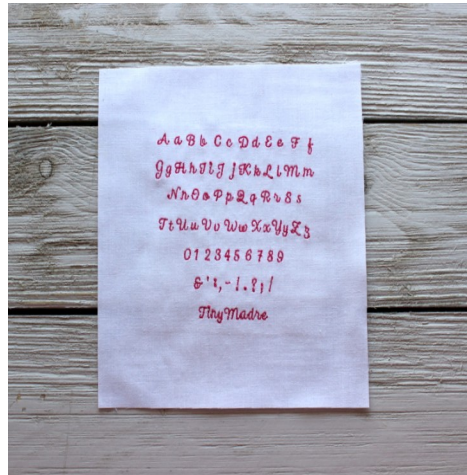 AaBbCcDdEeFf
GgHhIiJjKkLlMm
NnOoPpQqRrSs
TtUuVvWwXxYyZz
0123456789
&':,-!.?;/
TinyMadre